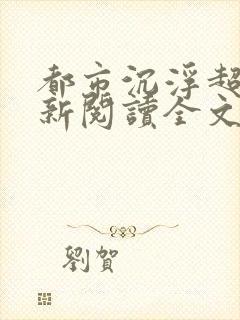 都市沉浮超
新閱讀全文
劉賀